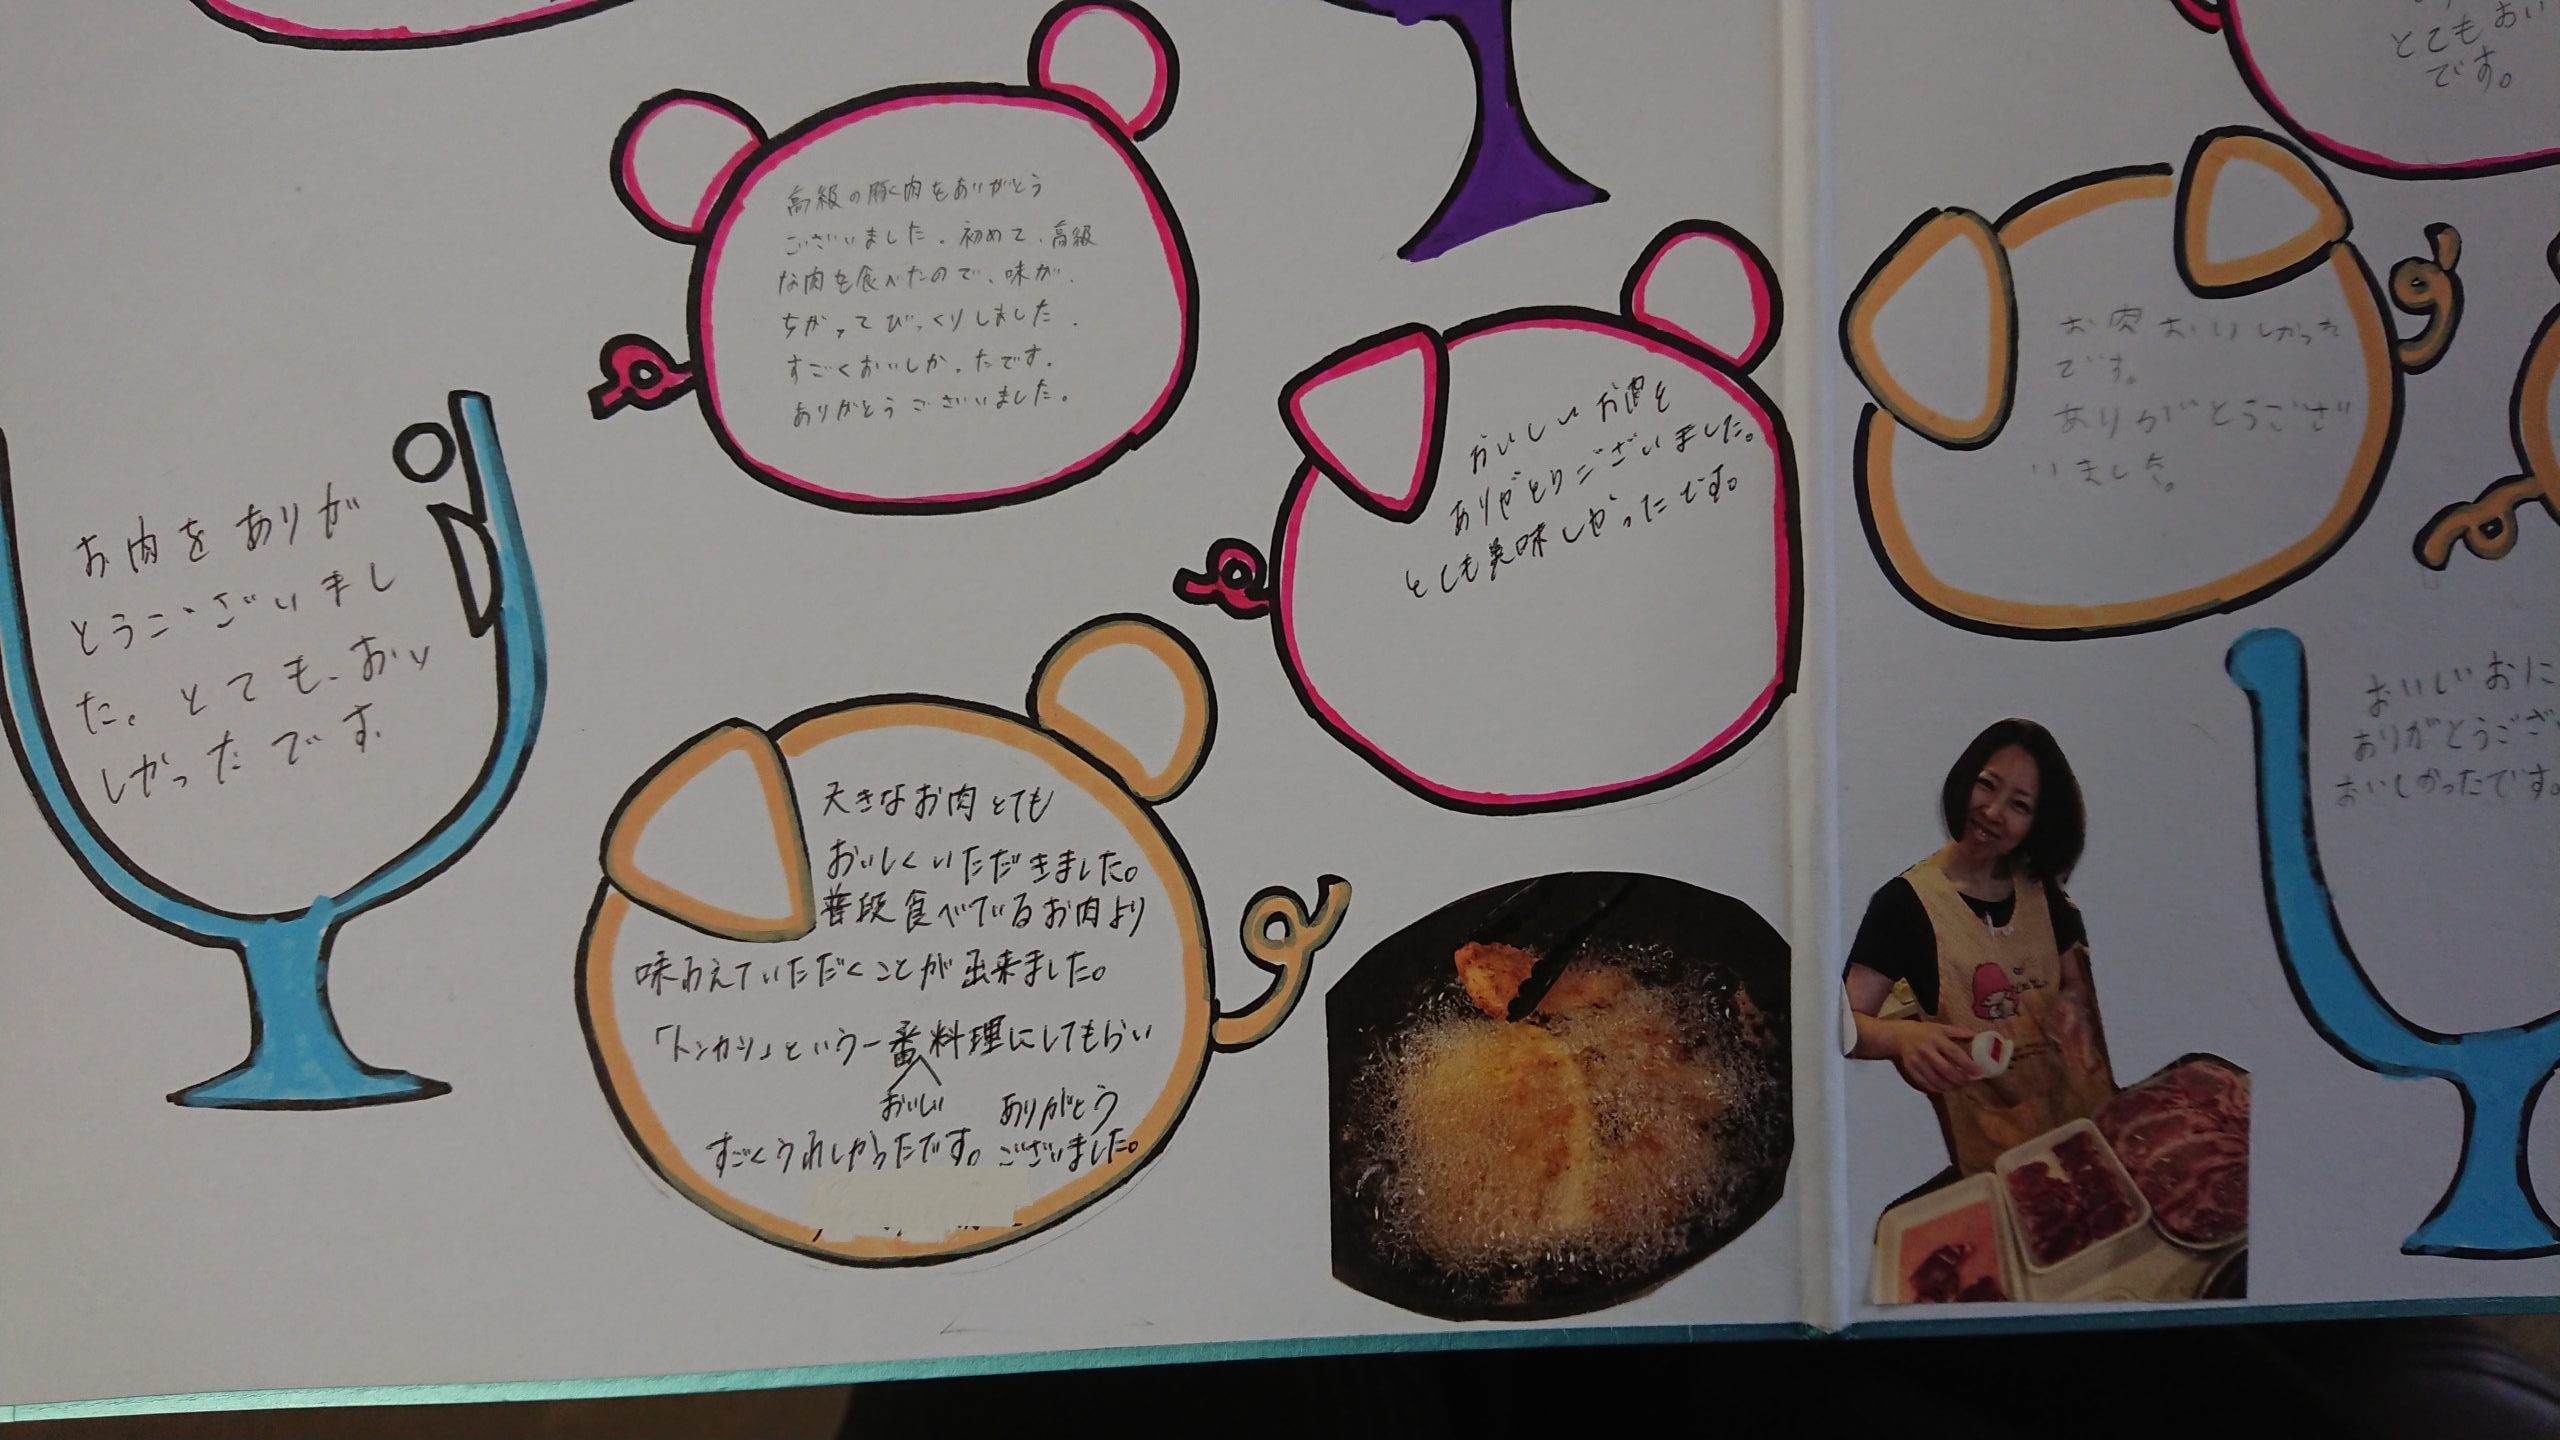 高級の豚肉をありがとう
ございました。初めて、高級
な肉を食べたので、味が、
ちがってびっくりしました。
すごくおいしかったです。
ありがとうございました。
お肉をありが
とうございまし
た。とても、おい
しかったです。
おいしいお肉を
ありがとうございました。
とても美味しかったです。
大きなお肉とても
おいしくいただきました。
普段食べているお肉より
味わえていただくことが出来ました。
「トンカツ」という一番料理にしてもらい
おいしい
ありがとう
すごくうれしかったです。ございました。
とてもおい
です。
お肉おいしかった
です。
ありがとうござ
いました。
おいしいおに
ありがとうござ
おいしかったです。